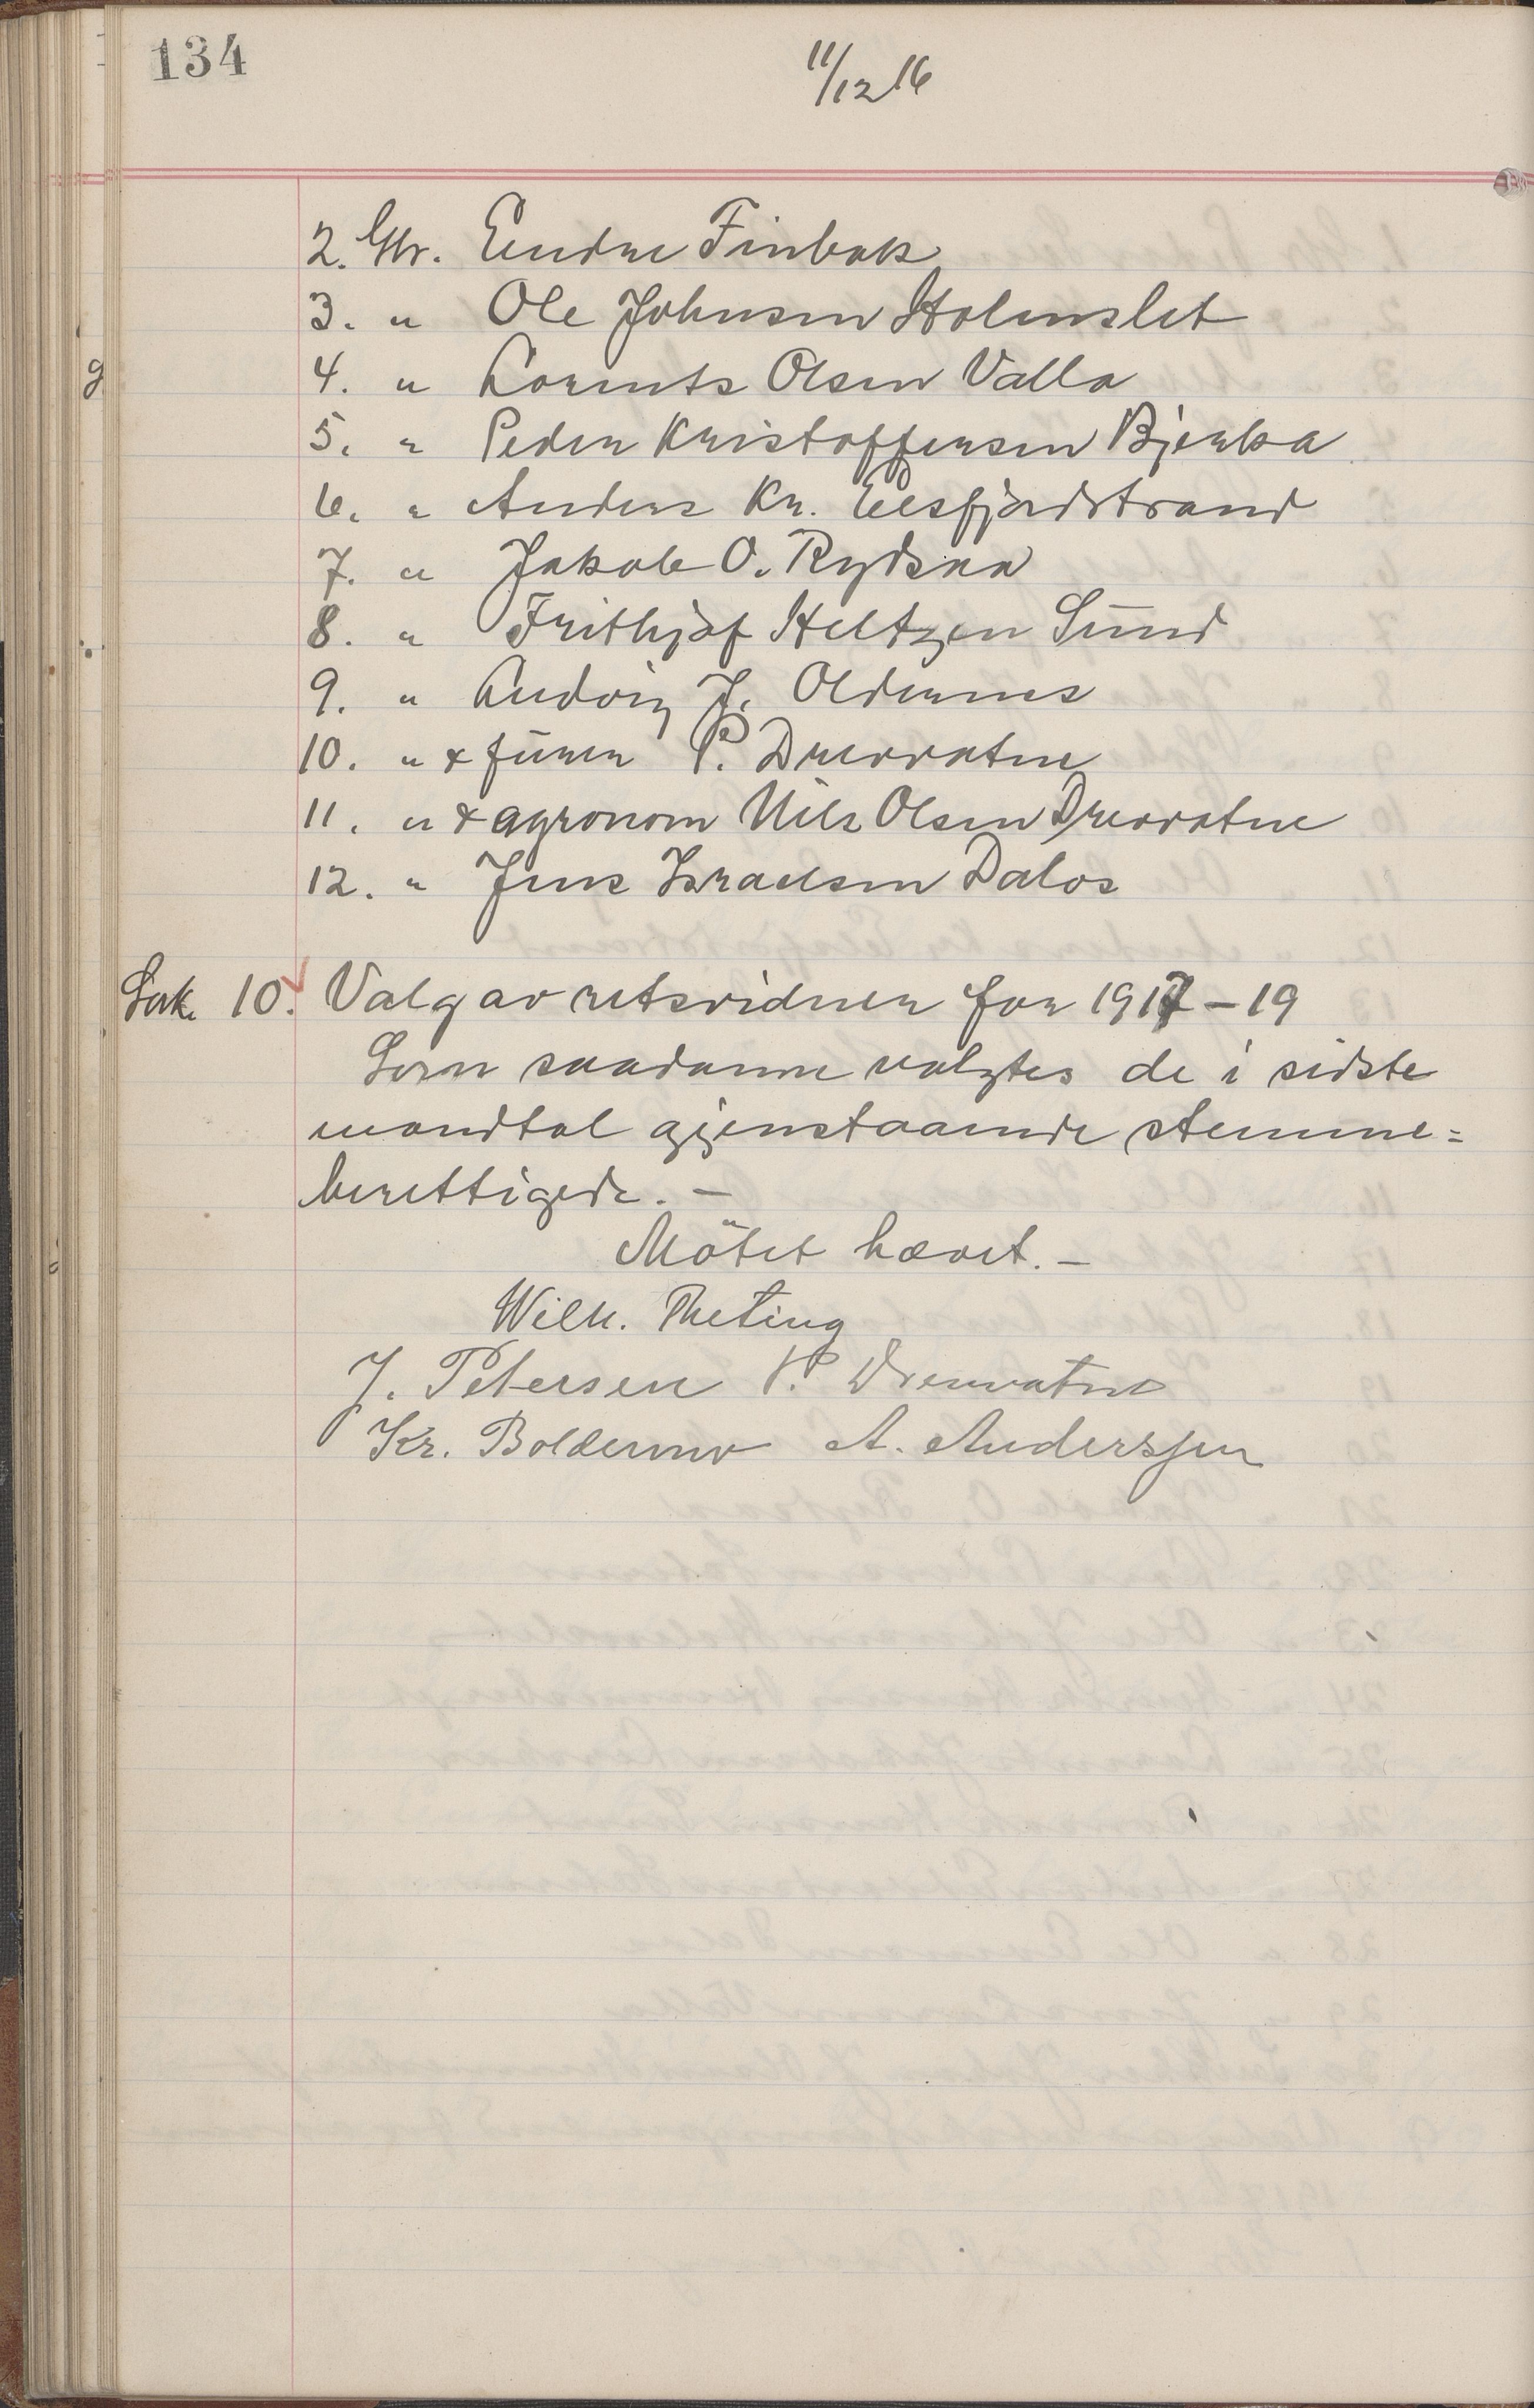 134
11/12 16
2. Gbr. Endre Finbak
3. " Ole Johnsen Holmslet
4. " Lorents Olsen Valla
5. " Peder Kristoffersen Bjerka
6. " Anders Kr. Elsfjordstrand
7. " Jakob O. Rydsaa
8. " Frithjof Heltzen Sund
9. " Ludvig J. Oldernes
10. " & furer P. Drevvatne
11. " & agronom Nils Olsen Drevvatne
12. " Jens Israelsen Dalos
Sak 10. Valg av retsvidner for 1917 - 19
Som saadanne valgtes de i sidste
mandtal gjenstaaende stemme=
berettigede. -
Møtet hævet. -
Wilh. Theting
J. Petersen P. Drevvatne
Kr. Boldermo A. Anderssen